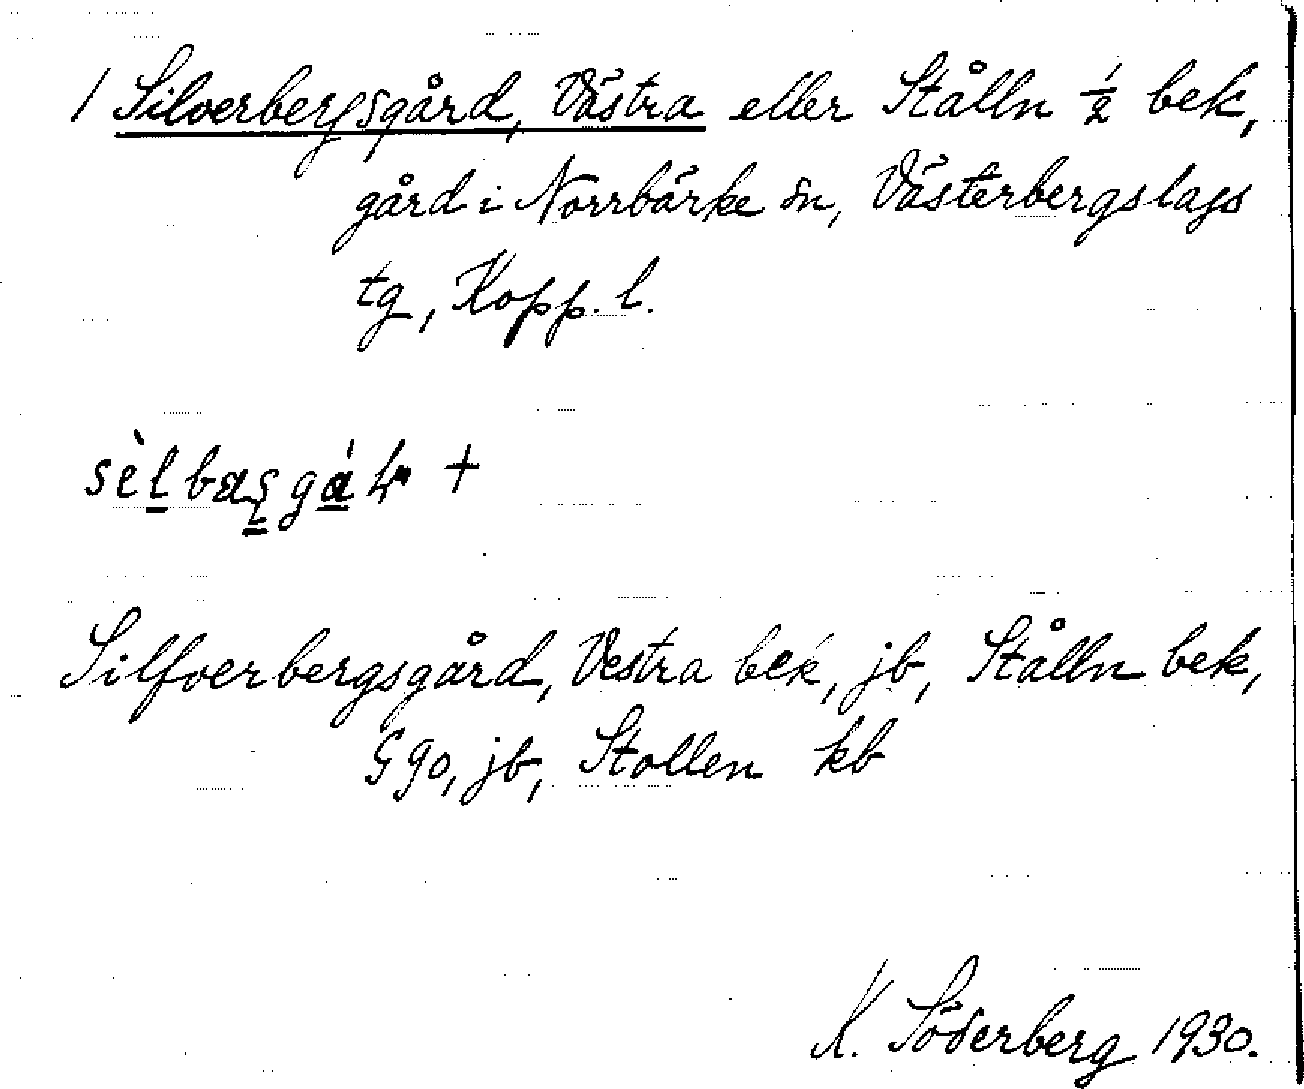 1 Silverbergsgård, Västra eller Ställn ½ bek,
gård i Norrbärke sn, Västerbergslags
tg, Kopp. l.
+
Silfverbergsgård, Vestra bek, jb, Stålln bek,
G90, jb, Stollen kb
K. Söderberg 1930.